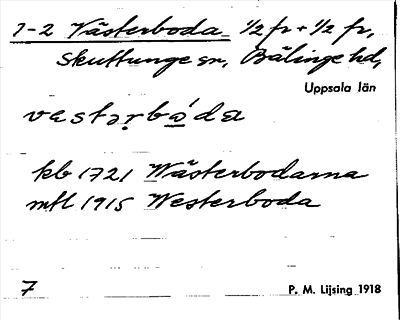 1-2 Västerboda 1/2 fr + 1/2 fr,
Skuttunge sn, Bälinge hd,
Uppsala län
vastərbɷ́da
kb 1721 Wästerbodarna
mtl 1915 Westerboda
7 P. M. Lijsing 1918